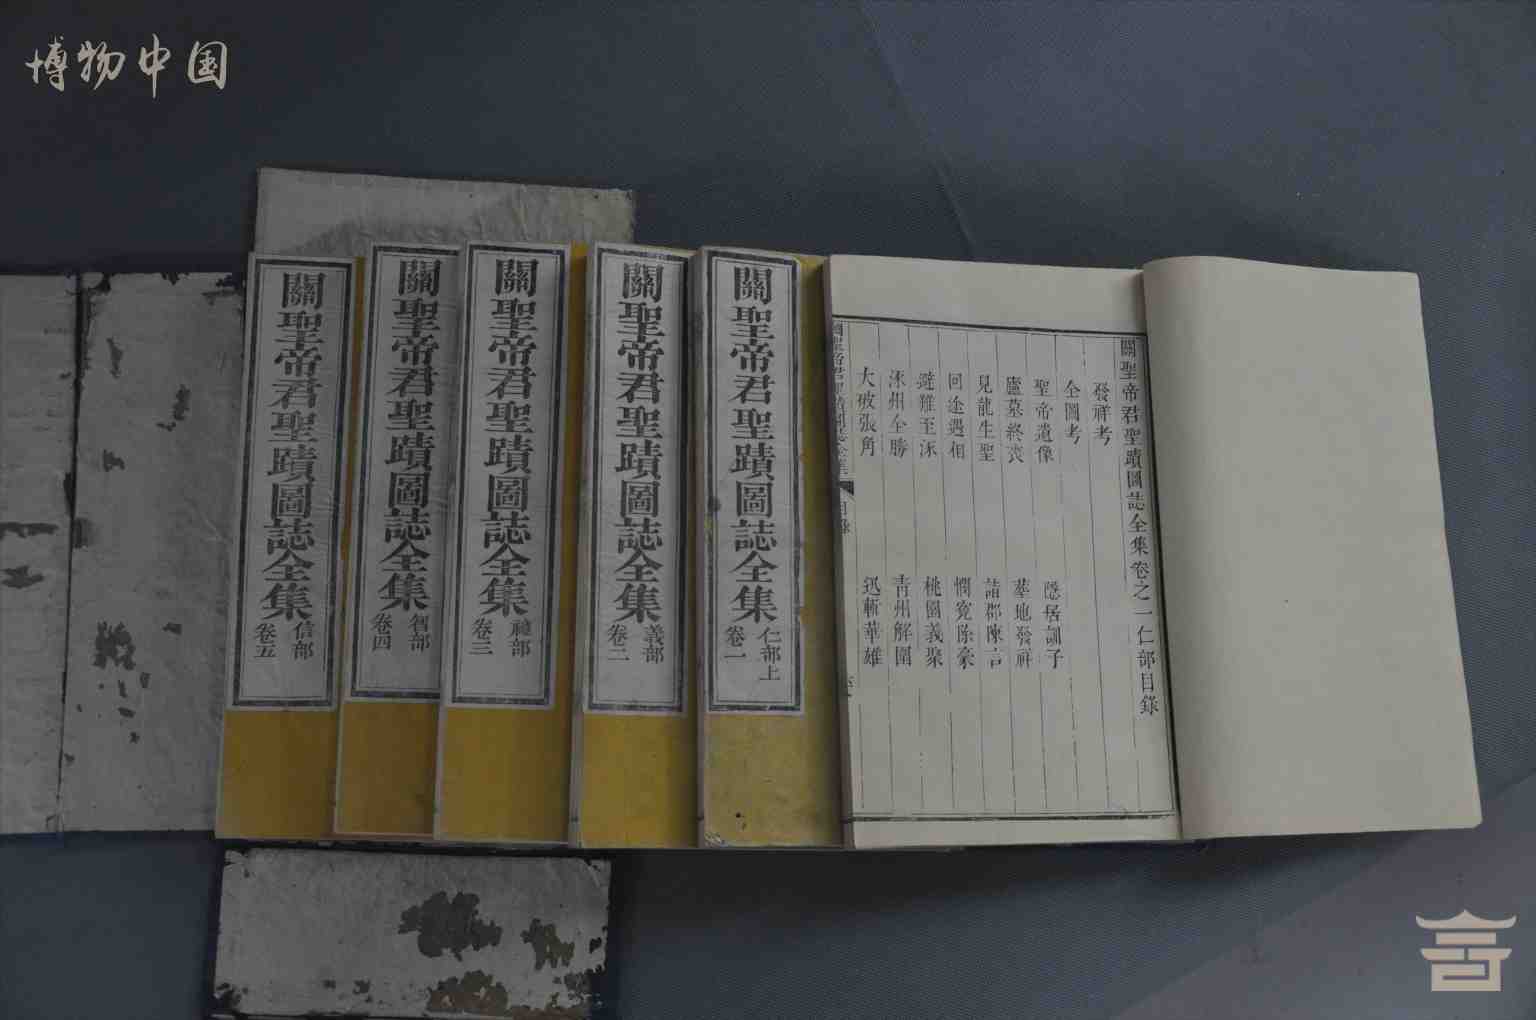 博物中国
關聖帝君聖蹟圖誌全集卷之一仁部目錄
發祥考
全圖考
聖帝遺像 隱居訓子
廬墓終喪 墓地發祥
見龍生聖 諸郡陳言
回途遇相 憫寃除豪
避難至涿 桃園義聚
涿州全勝 青州解圍
大破張角 迅斬華雄
關聖帝君聖蹟圖誌全集
目錄
關聖帝君聖蹟圖誌全集 仁部上
卷一
關聖帝君聖蹟圖誌全集 義部
卷二
關聖帝君聖蹟圖誌全集 禮部
卷三
關聖帝君聖蹟圖誌全集 智部
卷四
關聖帝君聖蹟圖誌全集 信部
卷五